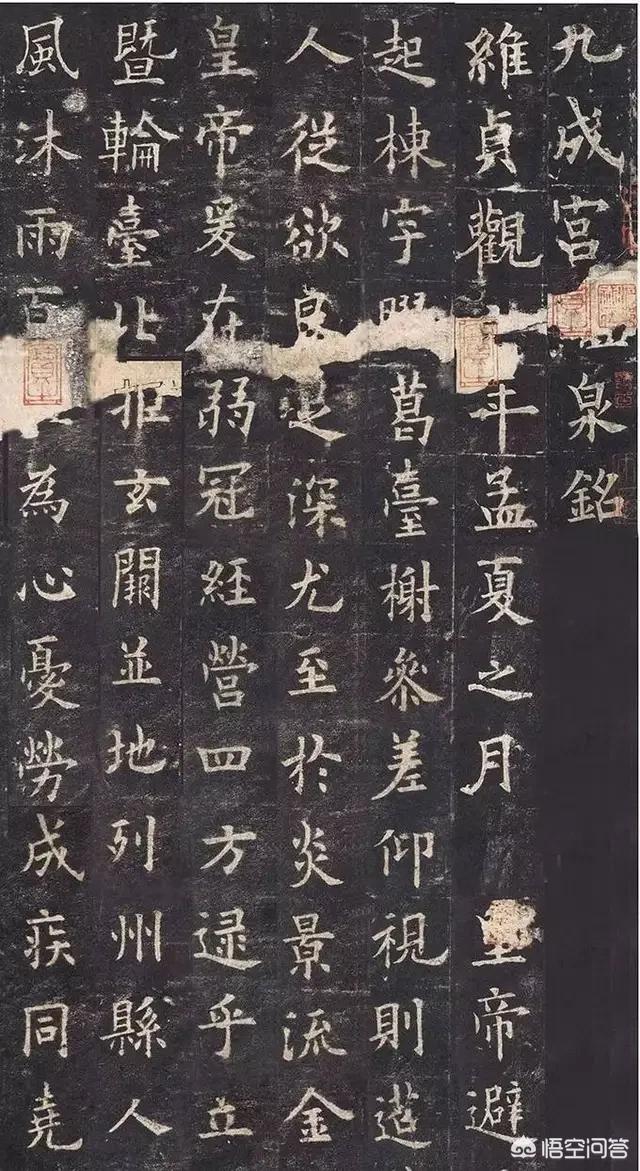 九成宮泉銘
維貞觀年孟夏之月 皇帝避
起棟宇葛臺榭參差仰視則迢
人從欲良足深尤至於炎景流金
皇帝爰在弱冠經營四方逮乎立
暨輪臺北拒玄闕並地列州縣人
風沐雨百為心憂勞成疾同堯
悟空问答